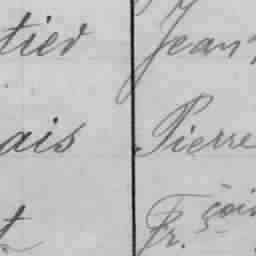 tied Jean
ais Pierre
t Fr. çois